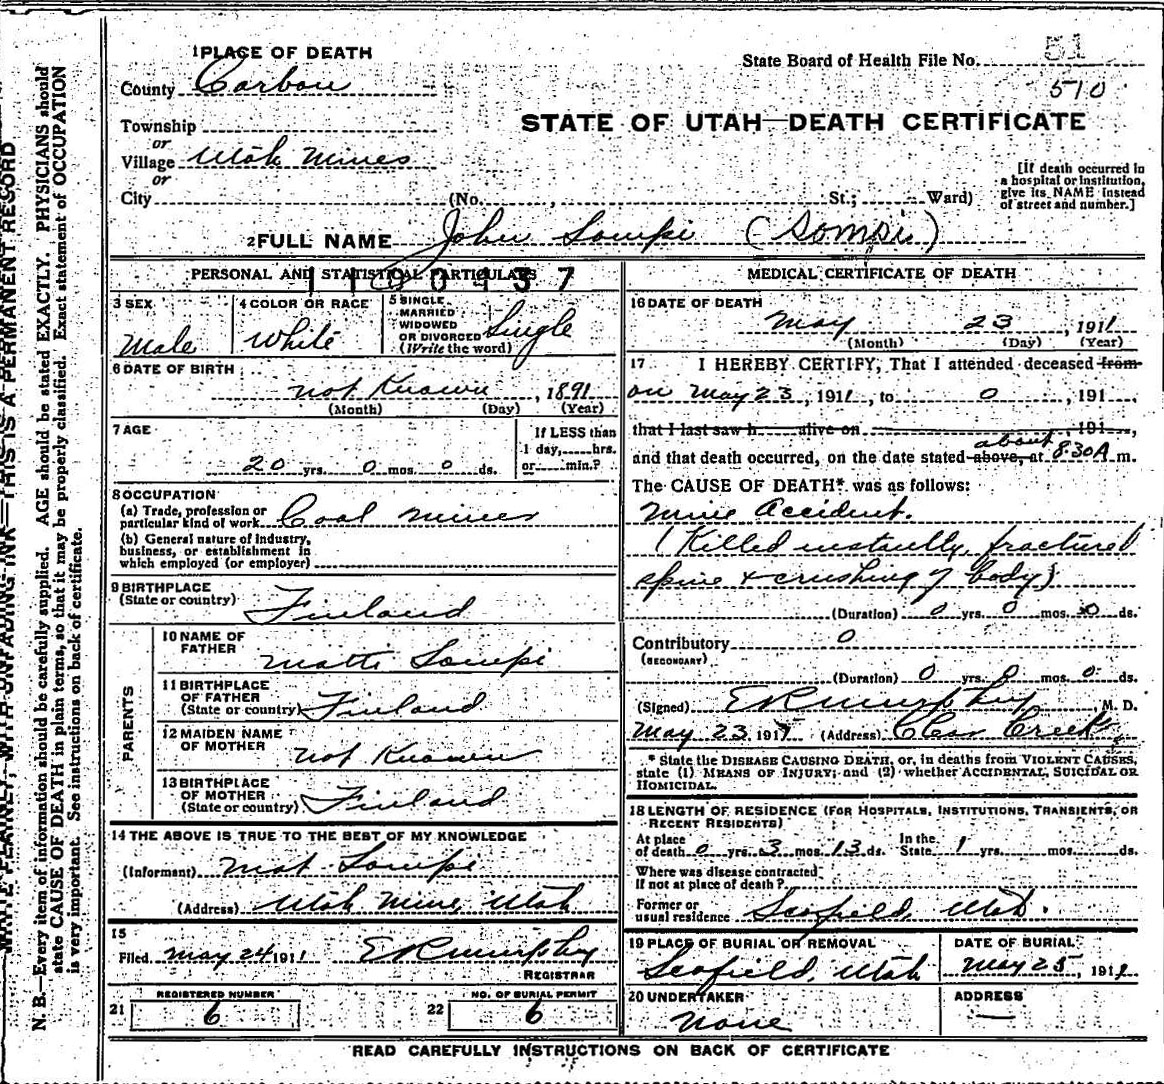 WRITE PLAINLY, WITH UNFADING INK—THIS IS A PERMANENT RECORD
N. B.—Every item of information should be carefully supplied. AGE should be stated EXACTLY. PHYSICIANS should
state CAUSE OF DEATH in plain terms, so that it may be properly classified. Exact statement of OCCUPATION
is very important. See instructions on back of certificate.
1 PLACE OF DEATH
County Carbon
Township
or
Village Utah Mines
or
City (No. , St.; Ward)
State Board of Health File No. 51
510
STATE OF UTAH—DEATH CERTIFICATE
[If death occurred in
a hospital or institution,
give its NAME instead
of street and number.]
2 FULL NAME John Sompi (Sompi)
PERSONAL AND STATISTICAL PARTICULARS
1100437
3 SEX
Male
4 COLOR OR RACE
White
5 SINGLE
MARRIED
WIDOWED
OR DIVORCED
(Write the word)
Single
6 DATE OF BIRTH
not Known, 1891
(Month) (Day) (Year)
7 AGE
20 yrs. 0 mos. 0 ds.
If LESS than
1 day, hrs.
or min.?
8 OCCUPATION
(a) Trade, profession or
particular kind of work Coal miner
(b) General nature of industry,
business, or establishment in
which employed (or employer)
9 BIRTHPLACE
(State or country) Finland
PARENTS
10 NAME OF
FATHER
Matti Sompi
11 BIRTHPLACE
OF FATHER
(State or country) Finland
12 MAIDEN NAME
OF MOTHER
not Known
13 BIRTHPLACE
OF MOTHER
(State or country) Finland
14 THE ABOVE IS TRUE TO THE BEST OF MY KNOWLEDGE
(Informant) Mat Sompi
(Address) Utah Mine, Utah
15
Filed May 24 1911 E R Murphy
REGISTRAR
21 REGISTERED NUMBER
6
22 NO. OF BURIAL PERMIT
6
MEDICAL CERTIFICATE OF DEATH
16 DATE OF DEATH
May 23, 1911
(Month) (Day) (Year)
17 I HEREBY CERTIFY, That I attended deceased from
on May 23, 1911, to 0, 191
that I last saw h alive on , 191 ,
about
and that death occurred, on the date stated above, at 8:30 A m.
The CAUSE OF DEATH* was as follows:
Mine Accident.
(Killed instantly, fractured
spine & crushing of body)
(Duration) 0 yrs. 0 mos. 0 ds.
Contributory 0
(SECONDARY)
(Duration) 0 yrs. 0 mos. 0 ds.
(Signed) E R Murphy, M. D.
May 23 1911 (Address) Clear Creek
* State the DISEASE CAUSING DEATH, or, in deaths from VIOLENT CAUSES,
state (1) MEANS OF INJURY; and (2) whether ACCIDENTAL, SUICIDAL OR
HOMICIDAL.
18 LENGTH OF RESIDENCE (FOR HOSPITALS, INSTITUTIONS, TRANSIENTS, OR
RECENT RESIDENTS)
At place
of death 0 yrs. 3 mos. 13 ds. In the
State 1 yrs. mos. ds.
Where was disease contracted
If not at place of death?
Former or
usual residence Scofield, Utah.
19 PLACE OF BURIAL OR REMOVAL
Scofield, Utah
DATE OF BURIAL
May 25, 1911
20 UNDERTAKER
None
ADDRESS
—
READ CAREFULLY INSTRUCTIONS ON BACK OF CERTIFICATE